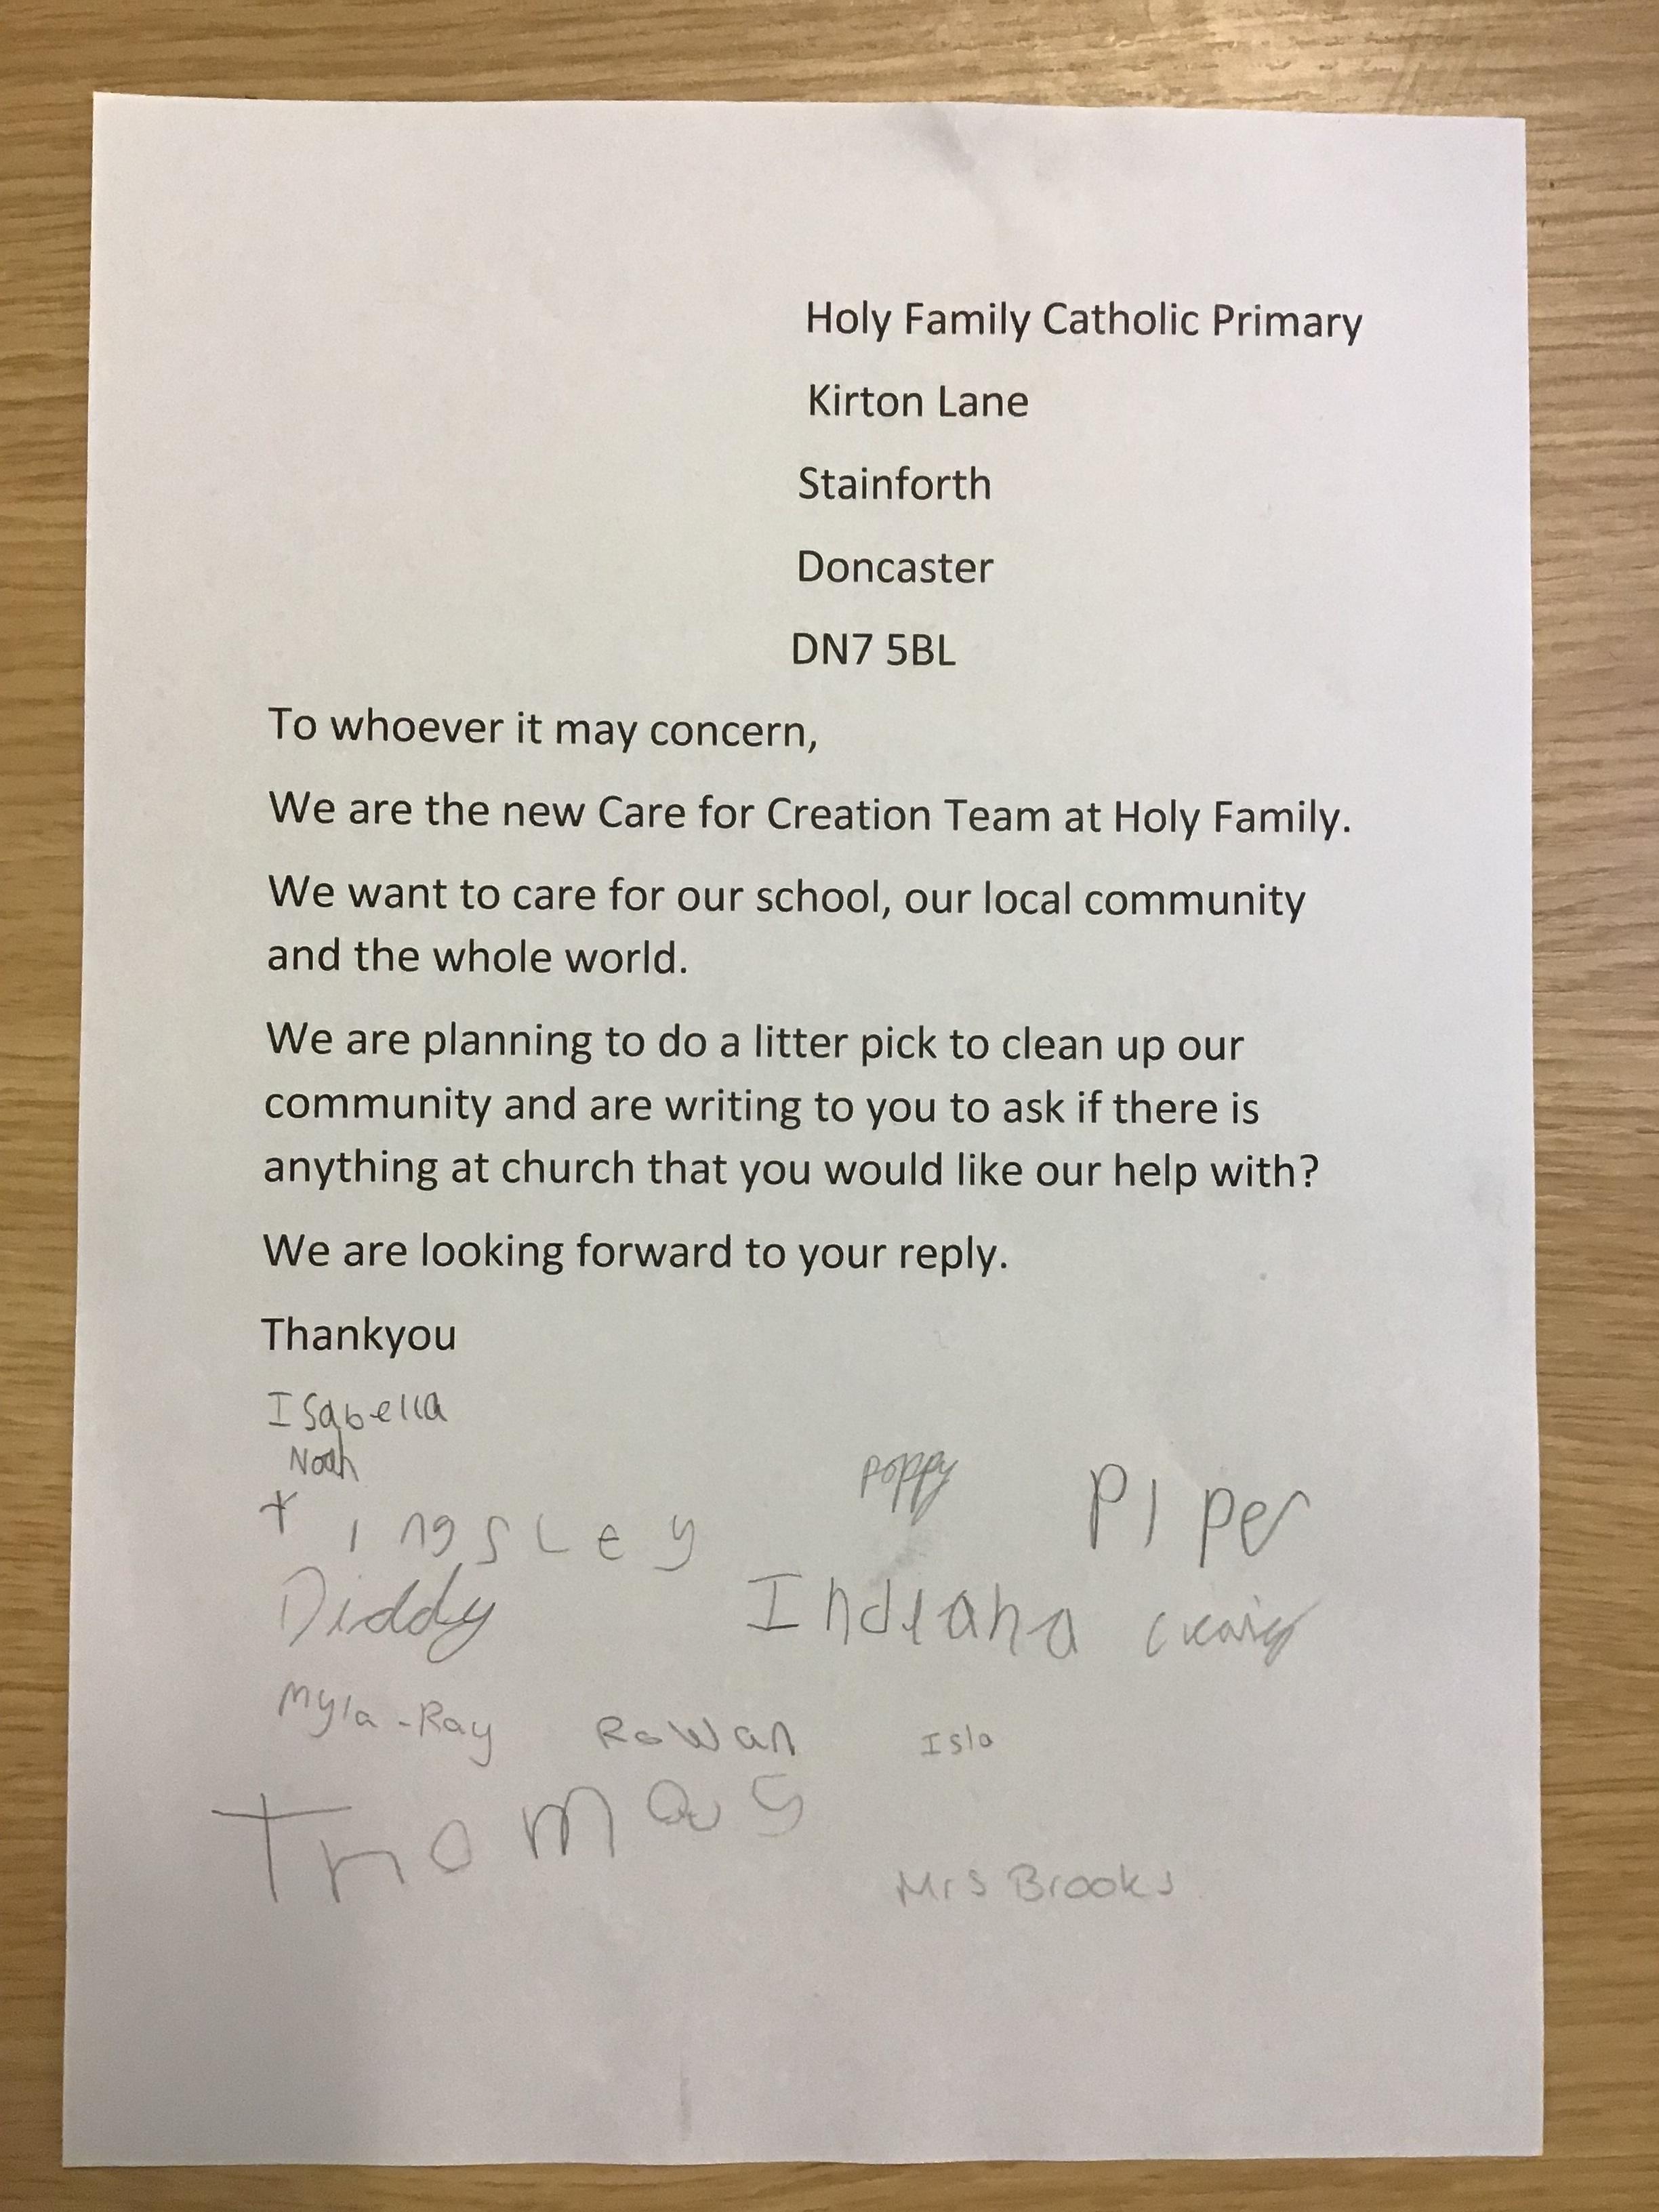 Holy Family Catholic Primary
Kirton Lane
Stainforth
Doncaster
DN7 5BL
To whoever it may concern,
We are the new Care for Creation Team at Holy Family.
We want to care for our school, our local community
and the whole world.
We are planning to do a litter pick to clean up our
community and are writing to you to ask if there is
anything at church that you would like our help with?
We are looking forward to your reply.
Thankyou
Isabella
Noah
Kingsley poppy Piper
Diddy Indiana
Myla-Ray Rowan Isla
Thomas
Mrs Brooks